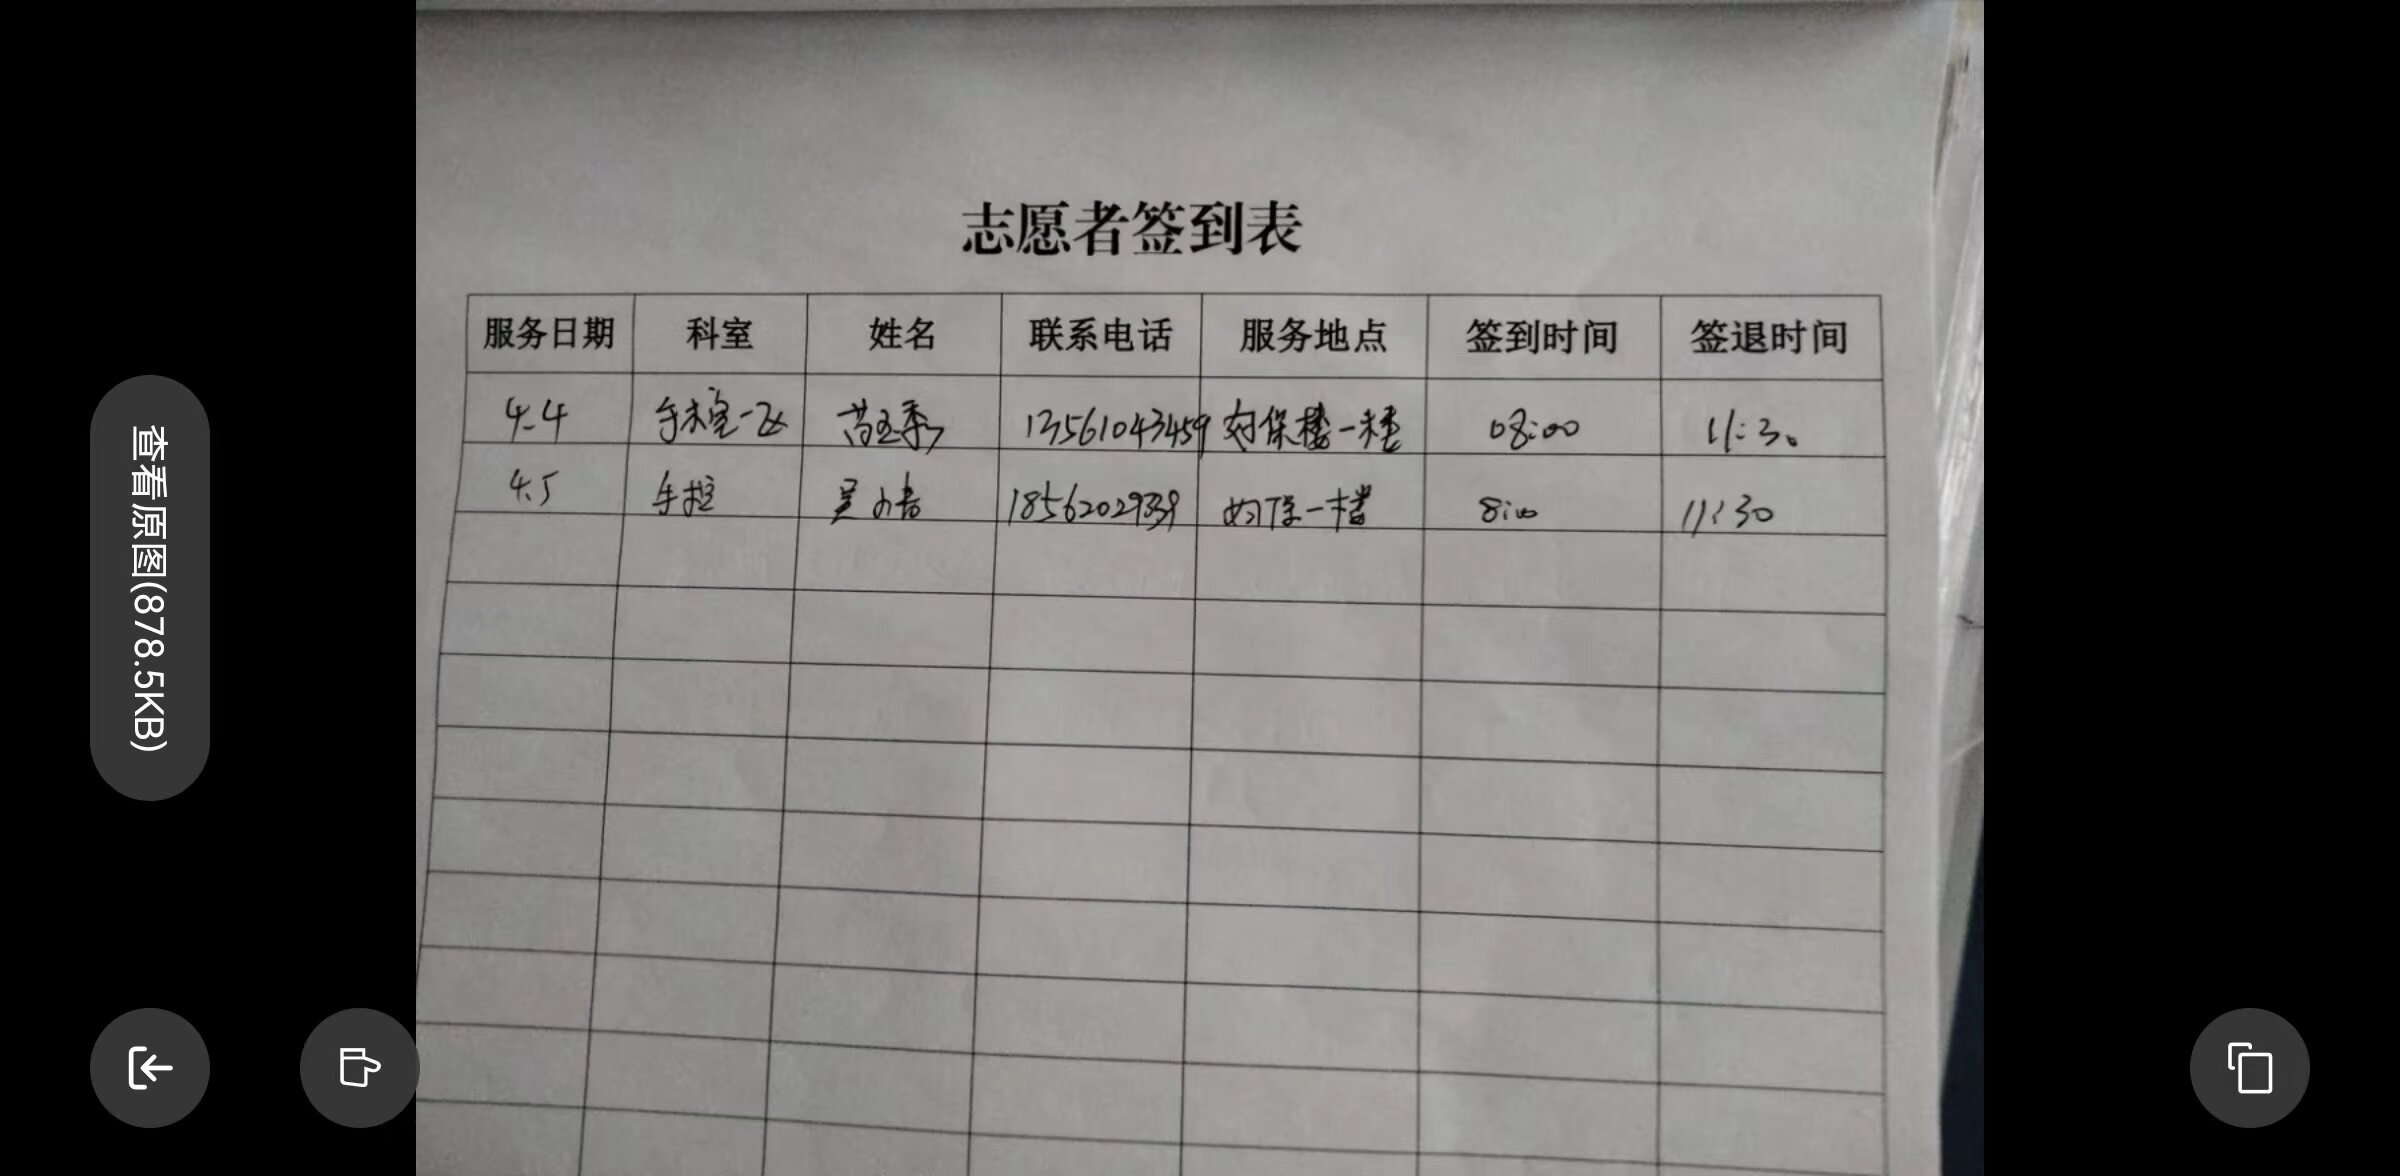 志愿者签到表
服务日期 科室 姓名 联系电话 服务地点 签到时间 签退时间
4.4 手术室一区 苗玉秀 13561043459 妇保楼一楼 08:00 11:30
4.5 手控 吴小青 妇保一楼 8:00 11:30
查看原图(878.5KB)